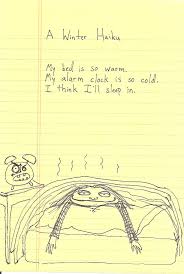 A Winter Haiku
My bed is so warm.
My alarm clock is so cold.
I think I'll sleep in.